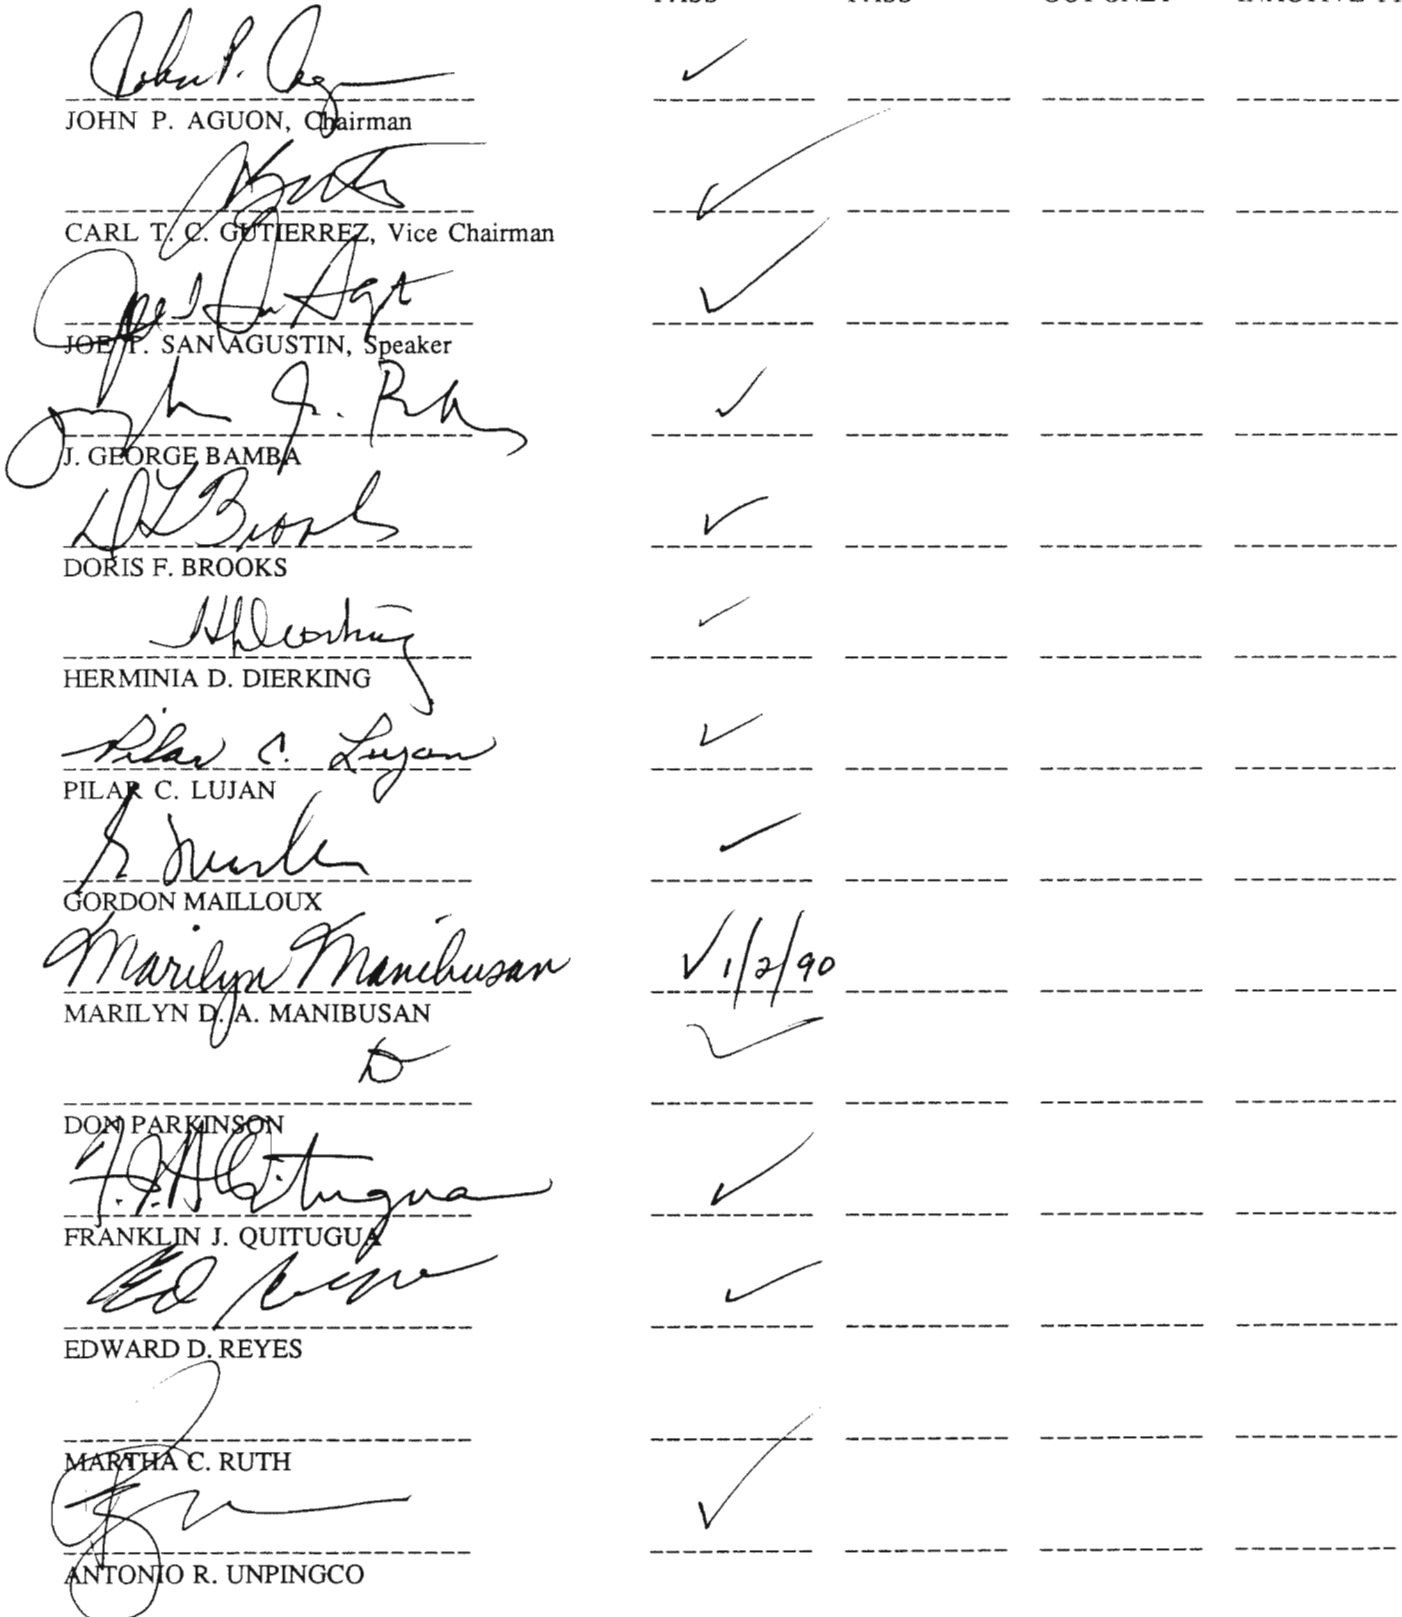 John P. Aguon
JOHN P. AGUON, Chairman
CARL T. C. GUTIERREZ, Vice Chairman
JOE T. SAN AGUSTIN, Speaker
J. GEORGE BAMBA
D F Brooks
DORIS F. BROOKS
HDierking
HERMINIA D. DIERKING
Pilar C. Lujan
PILAR C. LUJAN
GORDON MAILLOUX
Marilyn Manibusan ✓ 1/2/90
MARILYN D. A. MANIBUSAN
DON PARKINSON
F. J. Quitugua
FRANKLIN J. QUITUGUA
Ed Reyes
EDWARD D. REYES
MARTHA C. RUTH
ANTONIO R. UNPINGCO